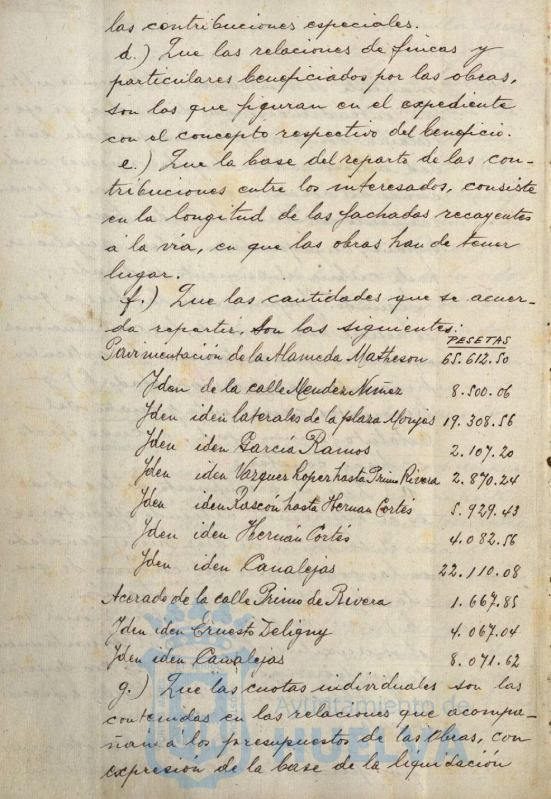 las contribuciones especiales.
d.) Que las relaciones de fincas y
particulares beneficiados por las obras,
son las que figuran en el expediente
con el concepto respectivo del beneficio.
e.) Que la base del reparto de las con-
tribuciones entre los interesados, consiste
en la longitud de las fachadas recayentes
á la vía, en que las obras han de tener
lugar.
f.) Que las cantidades que se acuer-
da repartir, son las siguientes:
PESETAS
Pavimentación de la Alameda Matheson 65.612.50
Yden de la calle Mendez Nuñez 8.500.06
Yden iden laterales de la plaza Monjas 19.308.56
Yden iden García Ramos 2.107.20
Yden iden Vazquez Lopez hasta Primo Rivera 2.870.24
Yden iden Rascón hasta Hernan Cortés 5.929.43
Yden iden Hernán Cortés 4.082.56
Yden iden Canalejas 22.110.08
Acerado de la calle Primo de Rivera 1.667.85
Yden iden Ernesto Deligny 4.067.04
Yden iden Canalejas 8.071.62
g.) Que las cuotas individuales son las
contenidas en las relaciones que acompa-
ñan á los presupuestos de las obras, con
expresión de la base de la liquidación
Ayuntamiento de
HUELVA